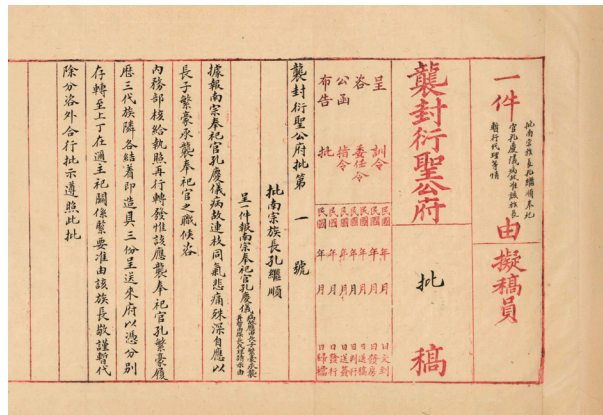 一件
批南宗族長孔繼順奉祀
官孔慶儀病故准該族長
暫行代理等情
由
擬稿員
襲封衍聖公府
批
稿
呈 訓令
咨 委任令
公函 指令
布告 批
民國 年 月 日文到
民國 年 月 日發房
民國 年 月 日送稿
民國 年 月 日判行
民國 年 月 日送簽
民國 年 月 日發行
民國 年 月 日歸檔
襲封衍聖公府批第一號
批南宗族長孔繼順
呈一件報南宗奉祀官孔慶儀
據報南宗奉祀官孔慶儀病故連枝同氣悲痛殊深自應以
長子繁豪承襲奉祀官之職候咨
內務部核給執照再行轉發惟該應襲奉祀官孔繁豪履
歷三代族隣各結著即造具三份呈送來府以憑分別
存轉至上丁在邇主祀關係緊要准由該族長敬謹暫代
除分咨外合行批示遵照此批